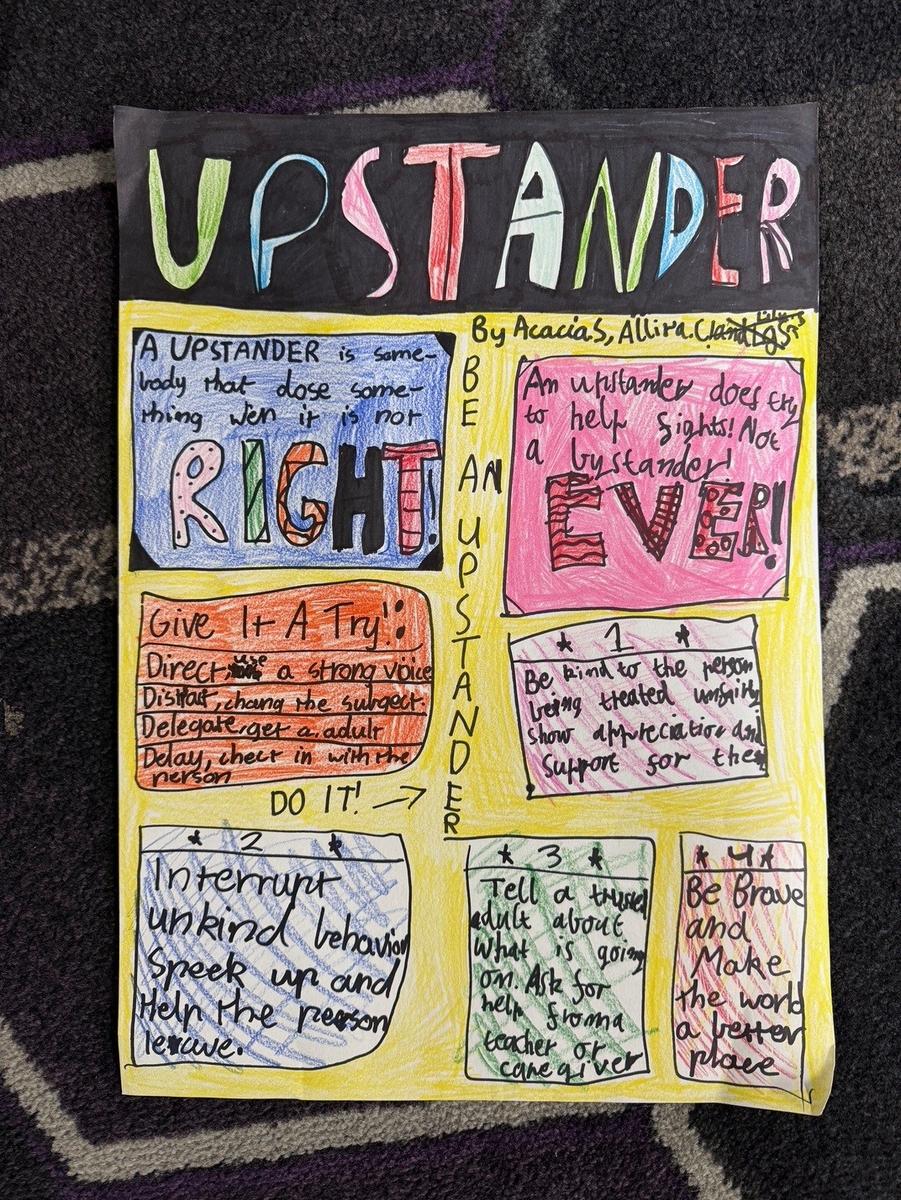 UPSTANDER
By Acacia S, Allira.C
A UPSTANDER is some-
body that dose some-
thing wen it is not
RIGHT!
BE AN UPSTANDER
An upstander does try
to help fights! Not
a bystander!
EVER!
Give It A Try!:
Direct, use a strong voice
Distract, chang the subgect.
Delegate, get a adult
Delay, check in with the
person
DO IT! →
* 1 *
Be kind to the person
being treated unfairly
show appreciation and
Support for them
* 2 *
Interrupt
unkind behavior
Speek up and
Help the person
leave.
* 3 *
Tell a trusted
adult about
what is going
on. Ask for
help from a
teacher or
caregiver
* 4 *
Be Brave
and
Make
the world
a better
place